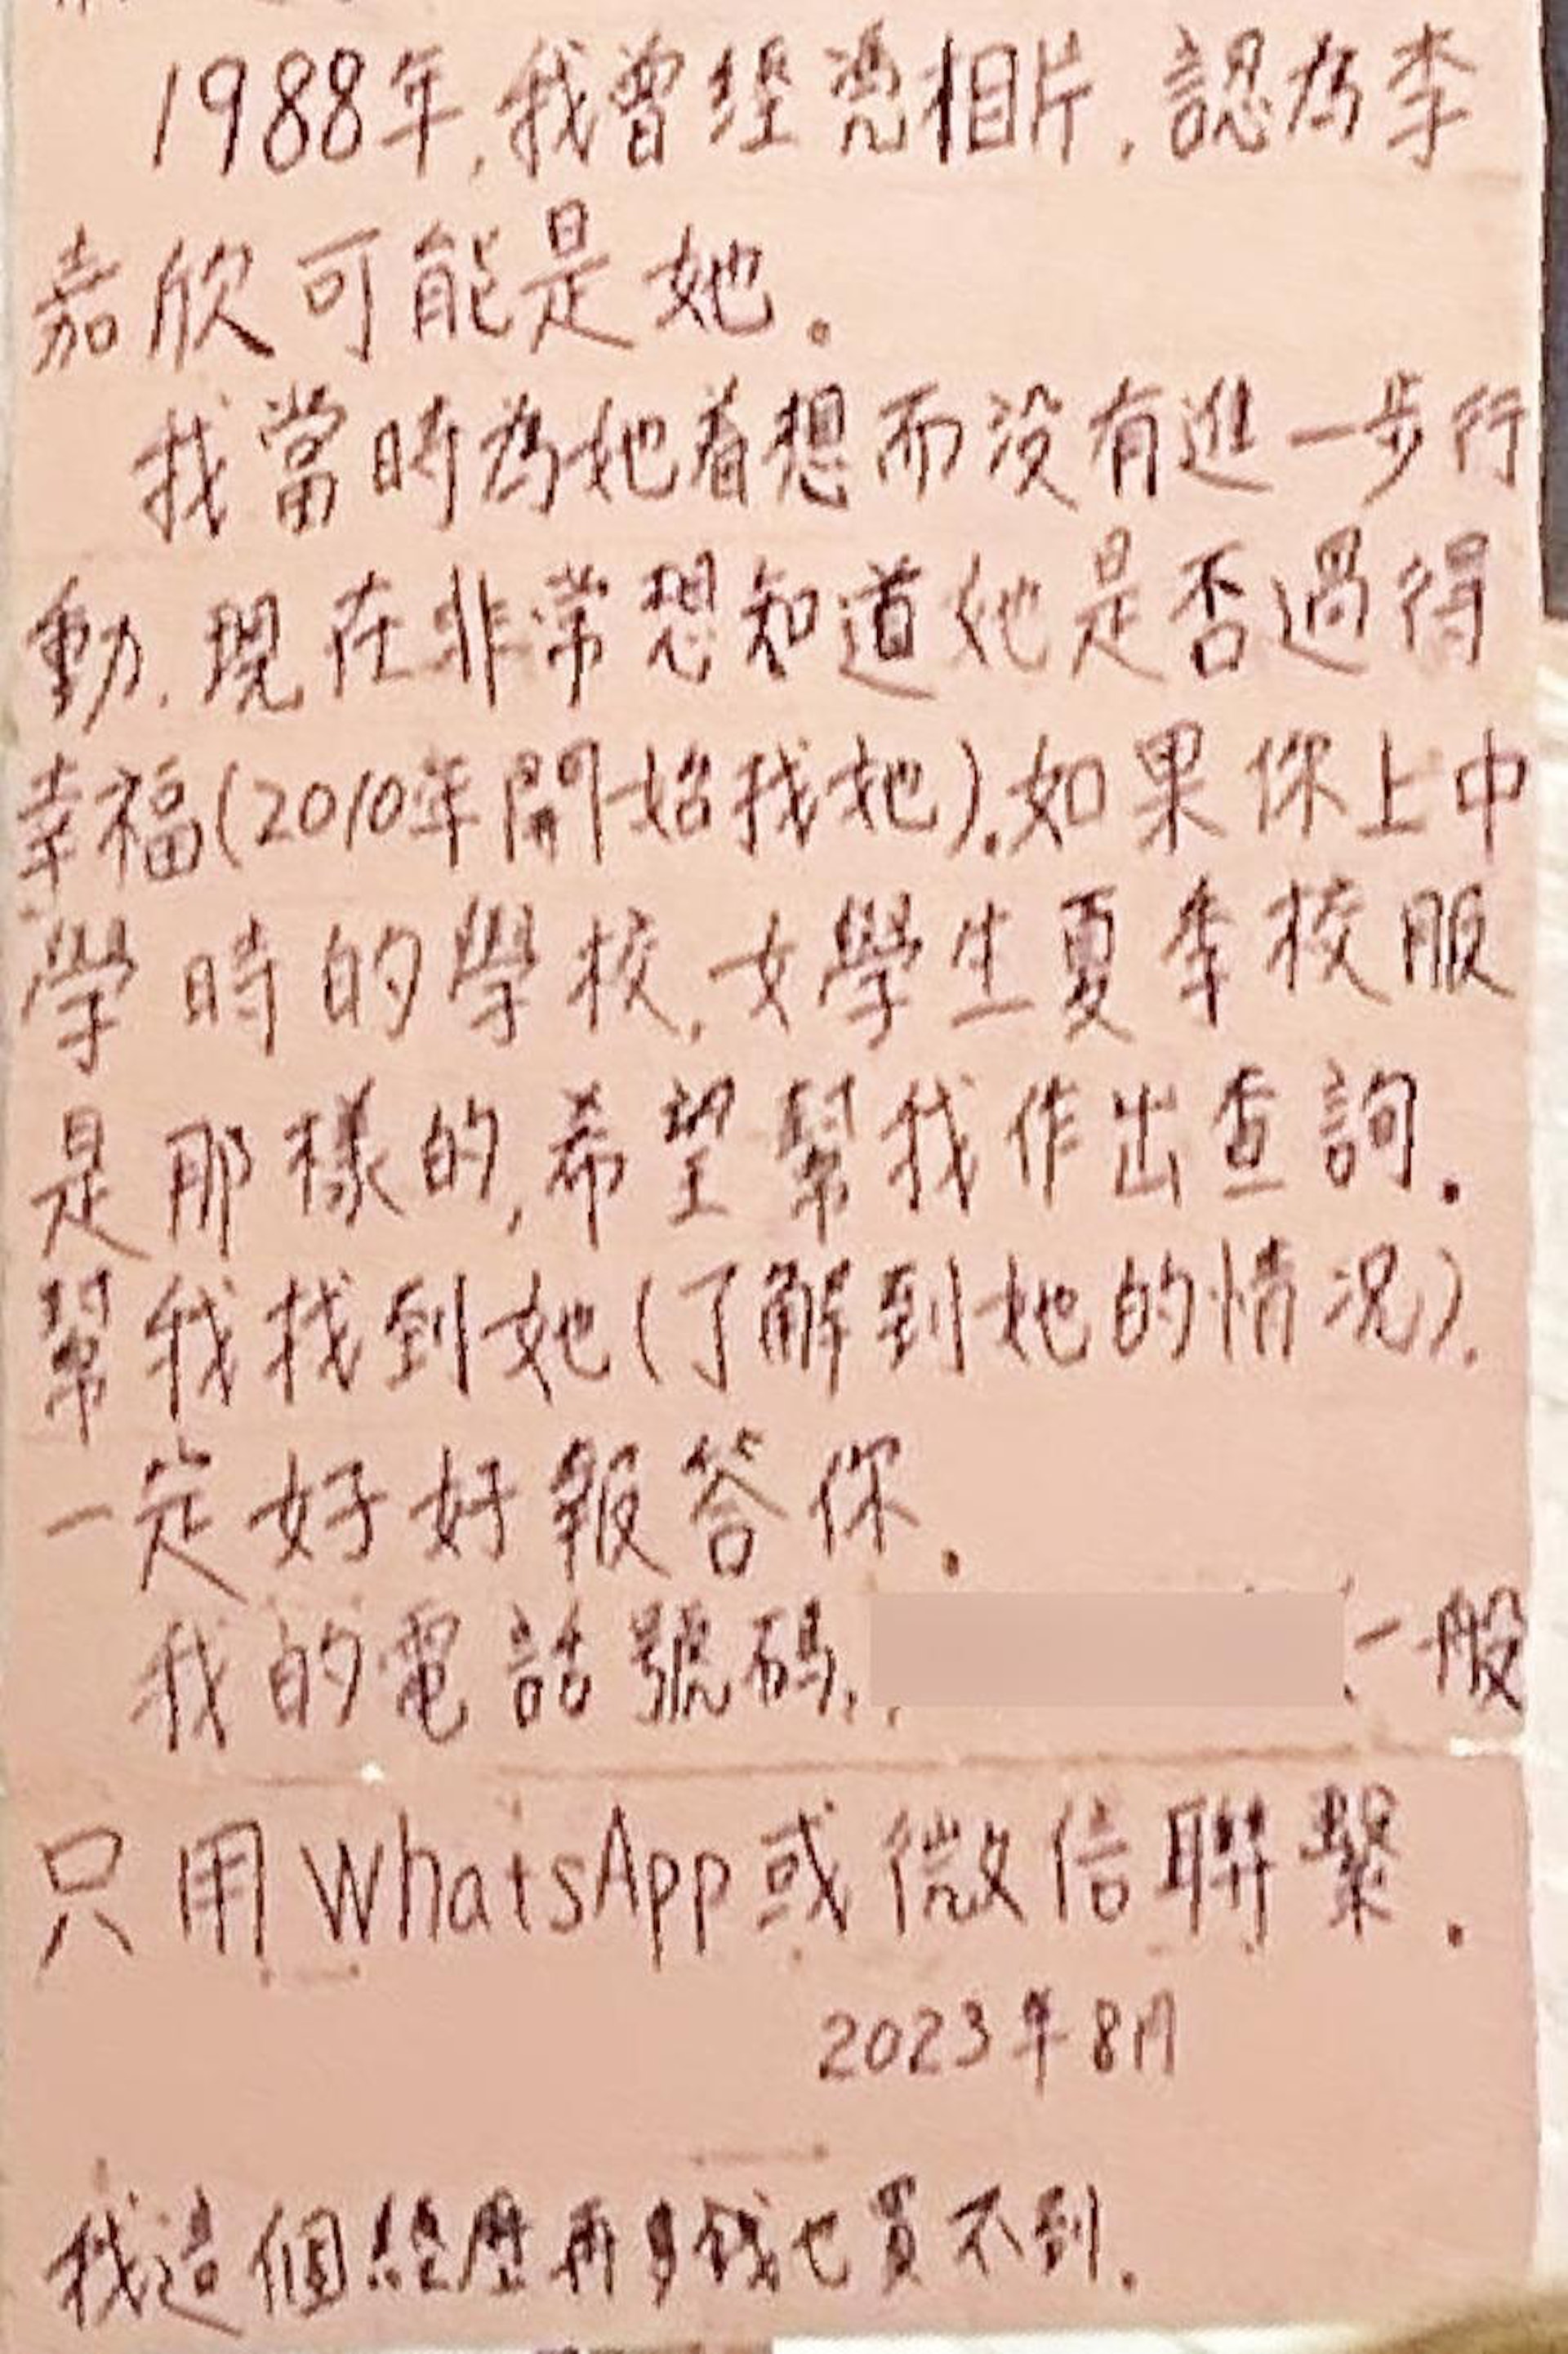 1988年,我曾經凴相片,認為李
嘉欣可能是她。
我當時為她着想而没有進一步行
動.現在非常想知道她是否過得
幸福(2010年開始找她).如果你上中
學時的學校,女學生夏季校服
是那樣的,希望幫我作出查詢.
幫我找到她(了解到她的情况).
一定好好報答你.
我的電話號碼.一般
只用WhatsApp或微信聯繫.
2023年8月
我這個經歷再多錢也買不到.